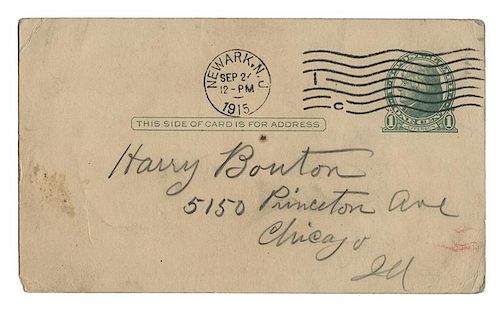 NEWARK, N.J.
SEP 24
12-PM
1915
1
C
THIS SIDE OF CARD IS FOR ADDRESS
1 1
Harry Bouton
5150 Princeton Ave
Chicago
Ill